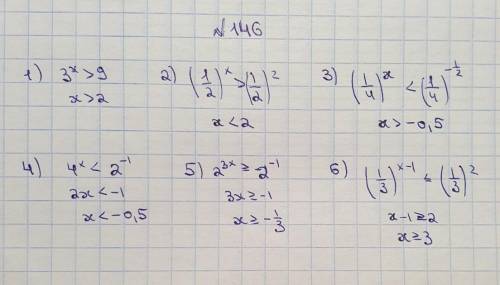 №146
1) 3^x > 9
x > 2
2) (1/2)^x > (1/2)^2
x < 2
3) (1/4)^x < (1/4)^(-1/2)
x > -0,5
4) 4^x < 2^(-1)
2x < -1
x < -0,5
5) 2^(3x) ≥ 2^(-1)
3x ≥ -1
x ≥ -1/3
6) (1/3)^(x-1) ≤ (1/3)^2
x-1 ≥ 2
x ≥ 3